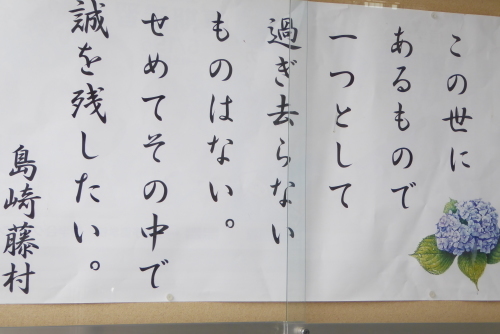 この世に
あるもので
一つとして
過ぎ去らない
ものはない。
せめてその中で
誠を残したい。
島崎藤村